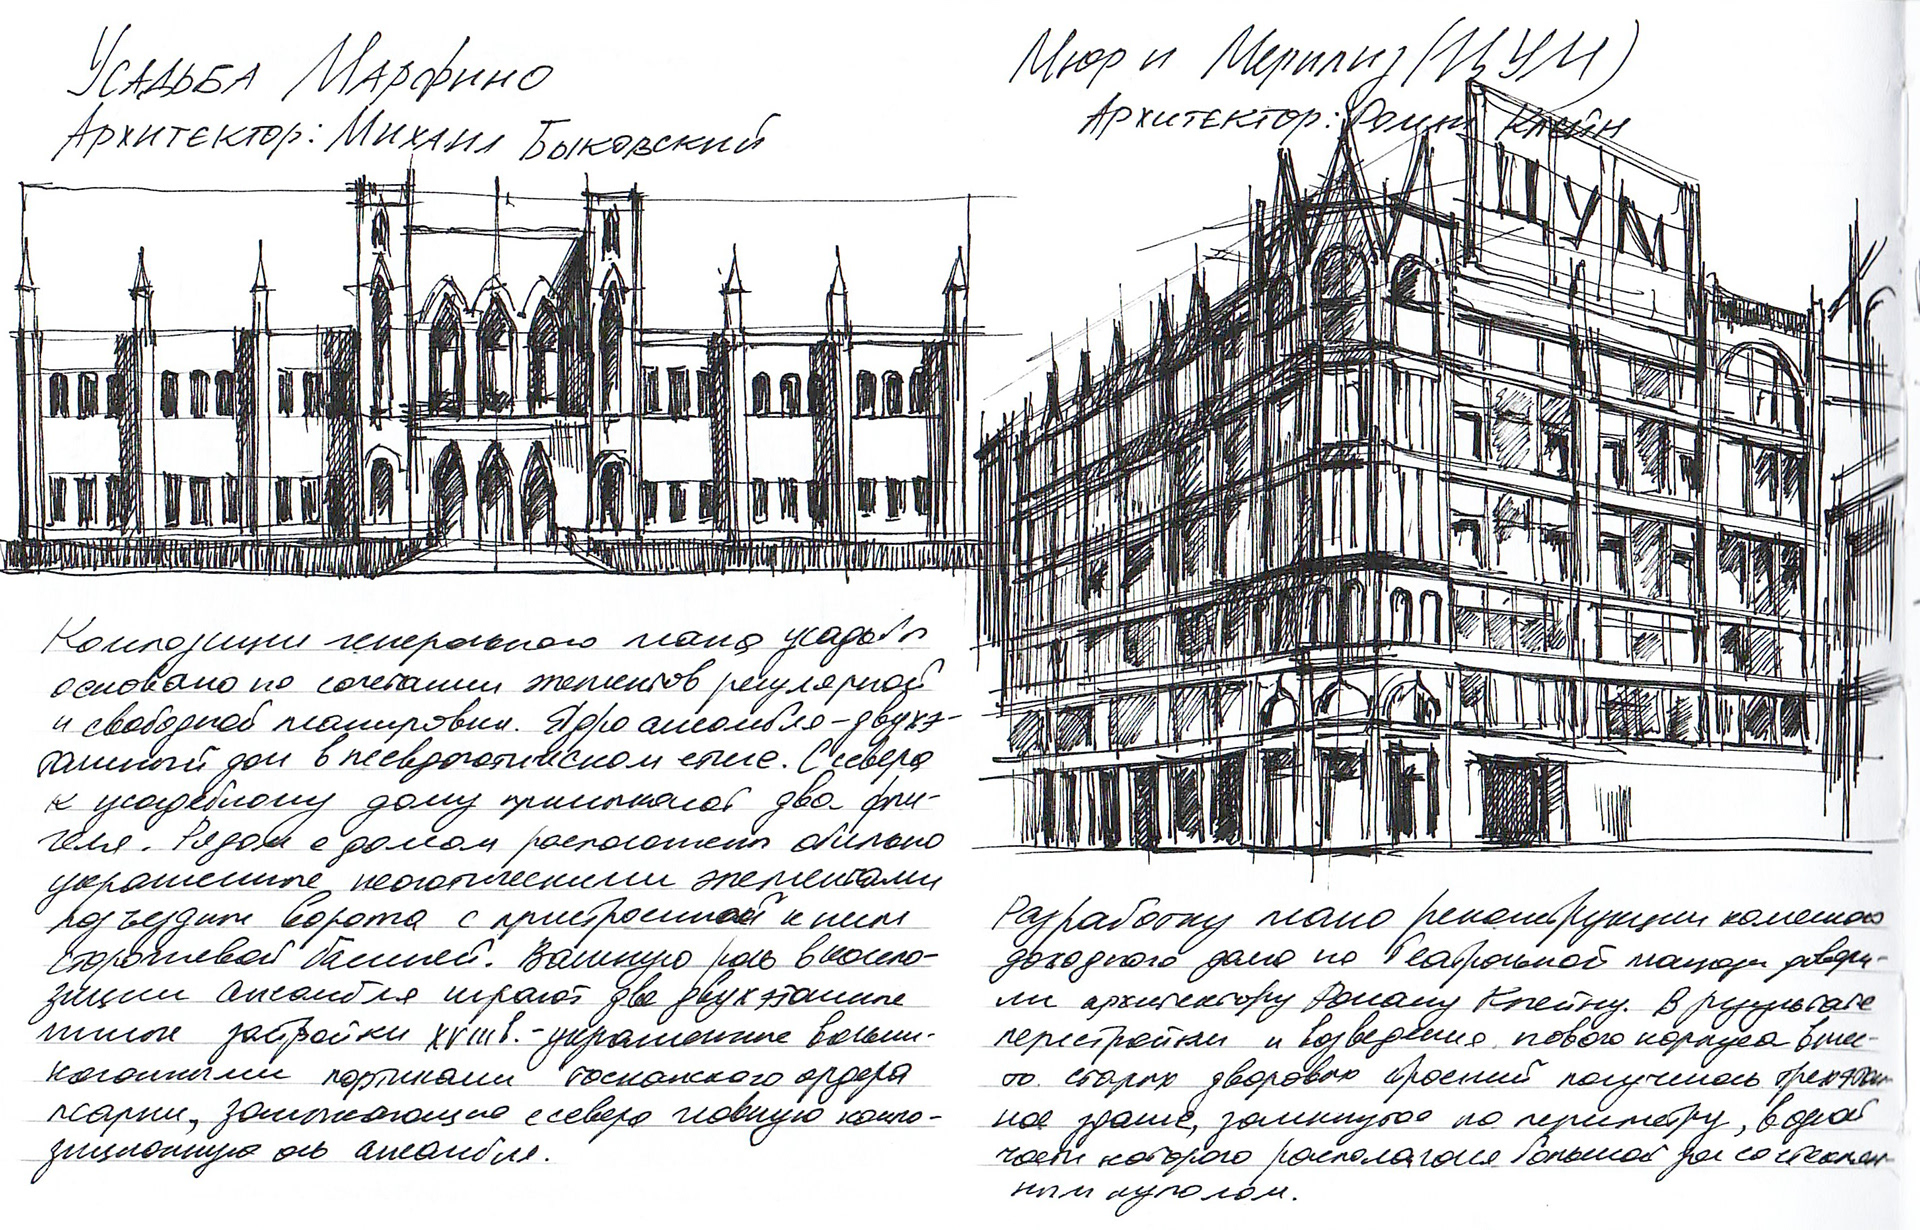 Усадьба Марфино
Архитектор: Михаил Быковский
Композиция генерального плана усадьбы
основана на сочетании элементов регулярной
и свободной планировки. Ядро ансамбля - двухэ-
тажный дом в псевдоготическом стиле. С севера
к усадебному дому примыкают два фли-
геля. Рядом с домом расположены обильно
украшенные неоготическими элементами
подъездные ворота с пристроенной к ним
сторожевой башней. Важную роль в компо-
зиции ансамбля играют две двухэтажные
линии застройки XVIII в. - украшенные восьми-
колонными портиками тосканского ордера
псарни, замыкающие с севера главную компо-
зиционную ось ансамбля.
Мюр и Мерилиз (ЦУМ)
Архитектор: Роман Клейн
ЦУМ
Разработку плана реконструкции каменного
доходного дома на Театральной площади довери-
ли архитектору Роману Клейну. В результате
перестройки и возведения нового корпуса вмес-
то старых дворовых строений получилось трехэтаж-
ное здание, замкнутое по периметру, в одной
части которого располагался большой зал со стеклян-
ным куполом.